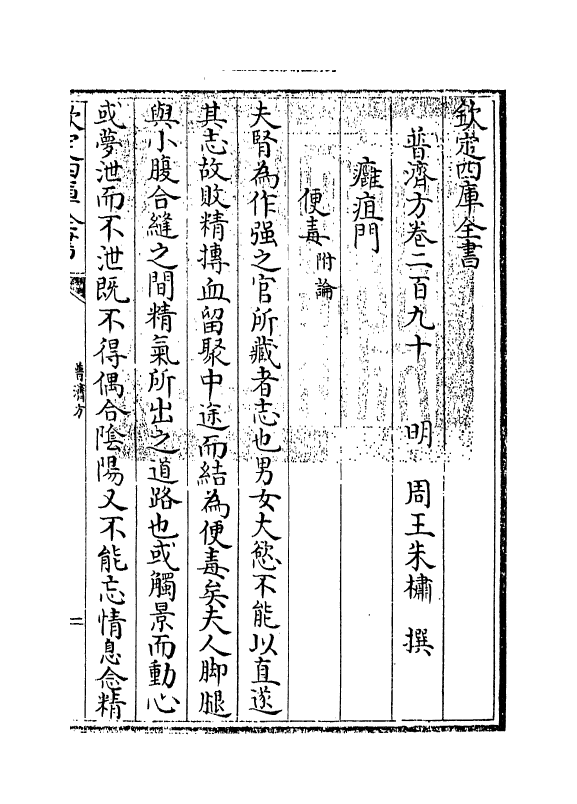 欽定四庫全書
普濟方卷二百九十　明　周王朱橚　撰
癰疽門
便毒附論
夫腎為作强之官所藏者志也男女大慾不能以直遂
其志故敗精摶血留聚中途而結為便毒矣夫人脚腿
與小腹合縫之間精氣所出之道路也或觸景而動心
或夢泄而不泄既不得偶合陰陽又不能忘情息念精
普濟方